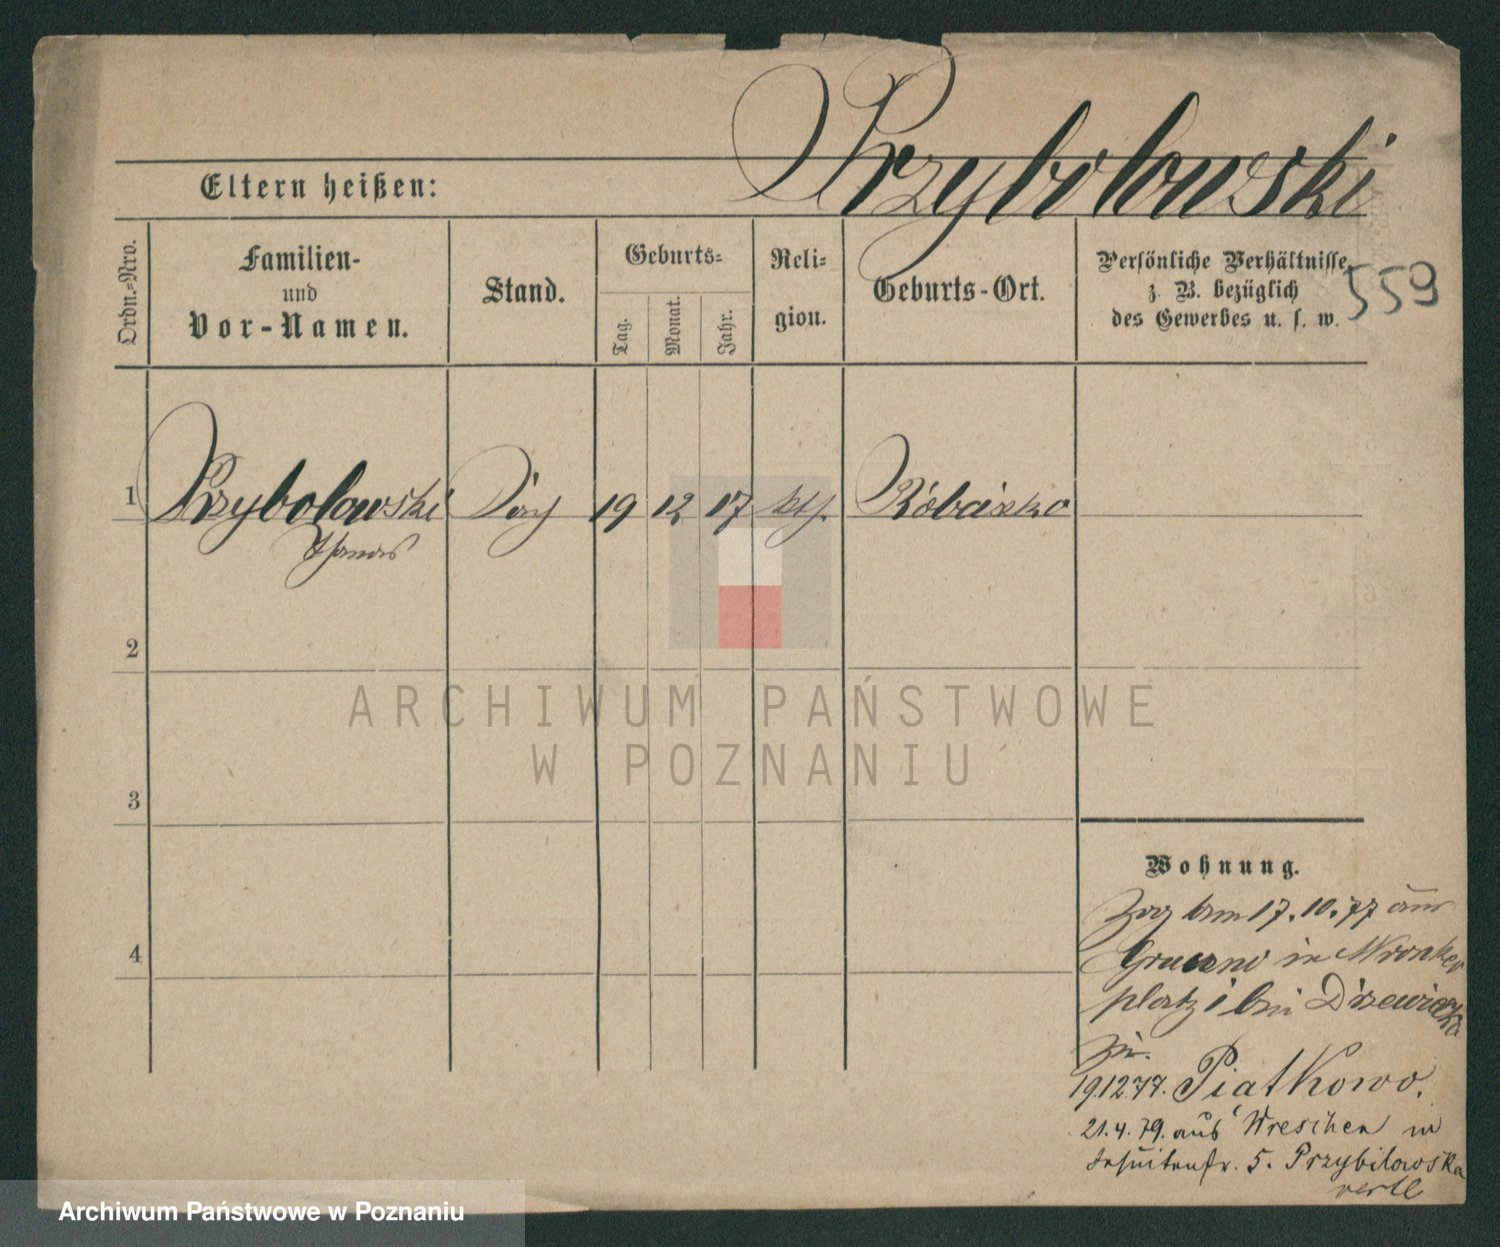 Przybolowski
Eltern heißen:
Ordn.-Nro.
Familien-
und
Vor-Namen.
Stand.
Geburts-
Tag.
Monat.
Jahr.
Reli-
gion.
Geburts-Ort.
Persönliche Verhältnisse
z. B. bezüglich
des Gewerbes u. s. w.
559
1 Przybolowski 19 12 17 kth.
Thomas
2
3
4
Wohnung.
17.10.77 aus
in Wronker
platz 1 bei Drzewiecka
zu.
19.12.77. Piatkowo.
21.4.79. aus Wreschen in
Jesuitenstr. 5. Przybilowska
ARCHIWUM PAŃSTWOWE
W POZNANIU
Archiwum Państwowe w Poznaniu